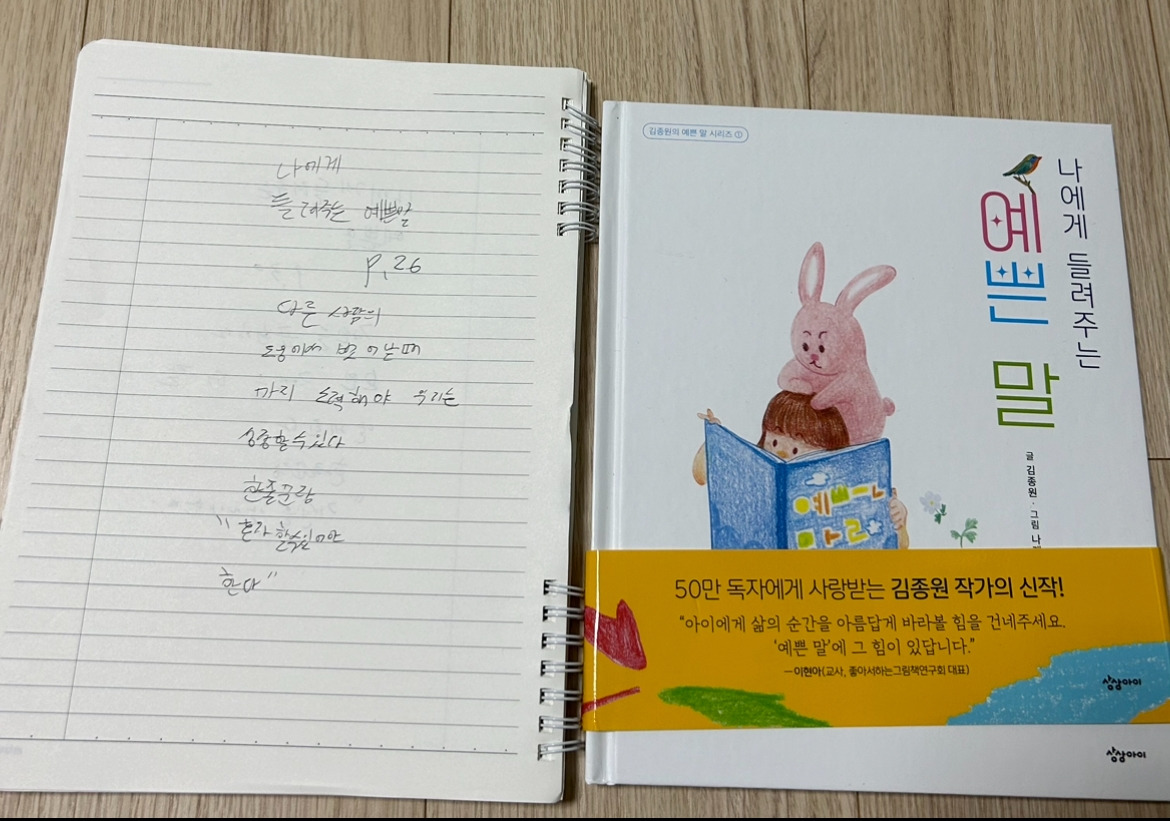 나에게
들려주는 예쁜말
p.26
다른 사람의
도움에서 벗어날때
까지 노력해야 우리는
성장할수있다
한줄근랑
"혼자 할수있어야
한다"
김종원의 예쁜 말 시리즈 ①
나에게 들려주는
예쁜 말
글 김종원 · 그림 나
예쁘ㄴ
마ㄹ
50만 독자에게 사랑받는 김종원 작가의 신작!
“아이에게 삶의 순간을 아름답게 바라볼 힘을 건네주세요.
‘예쁜 말’에 그 힘이 있답니다.”
—이현아(교사, 좋아서하는그림책연구회 대표)
상상아이
상상아이